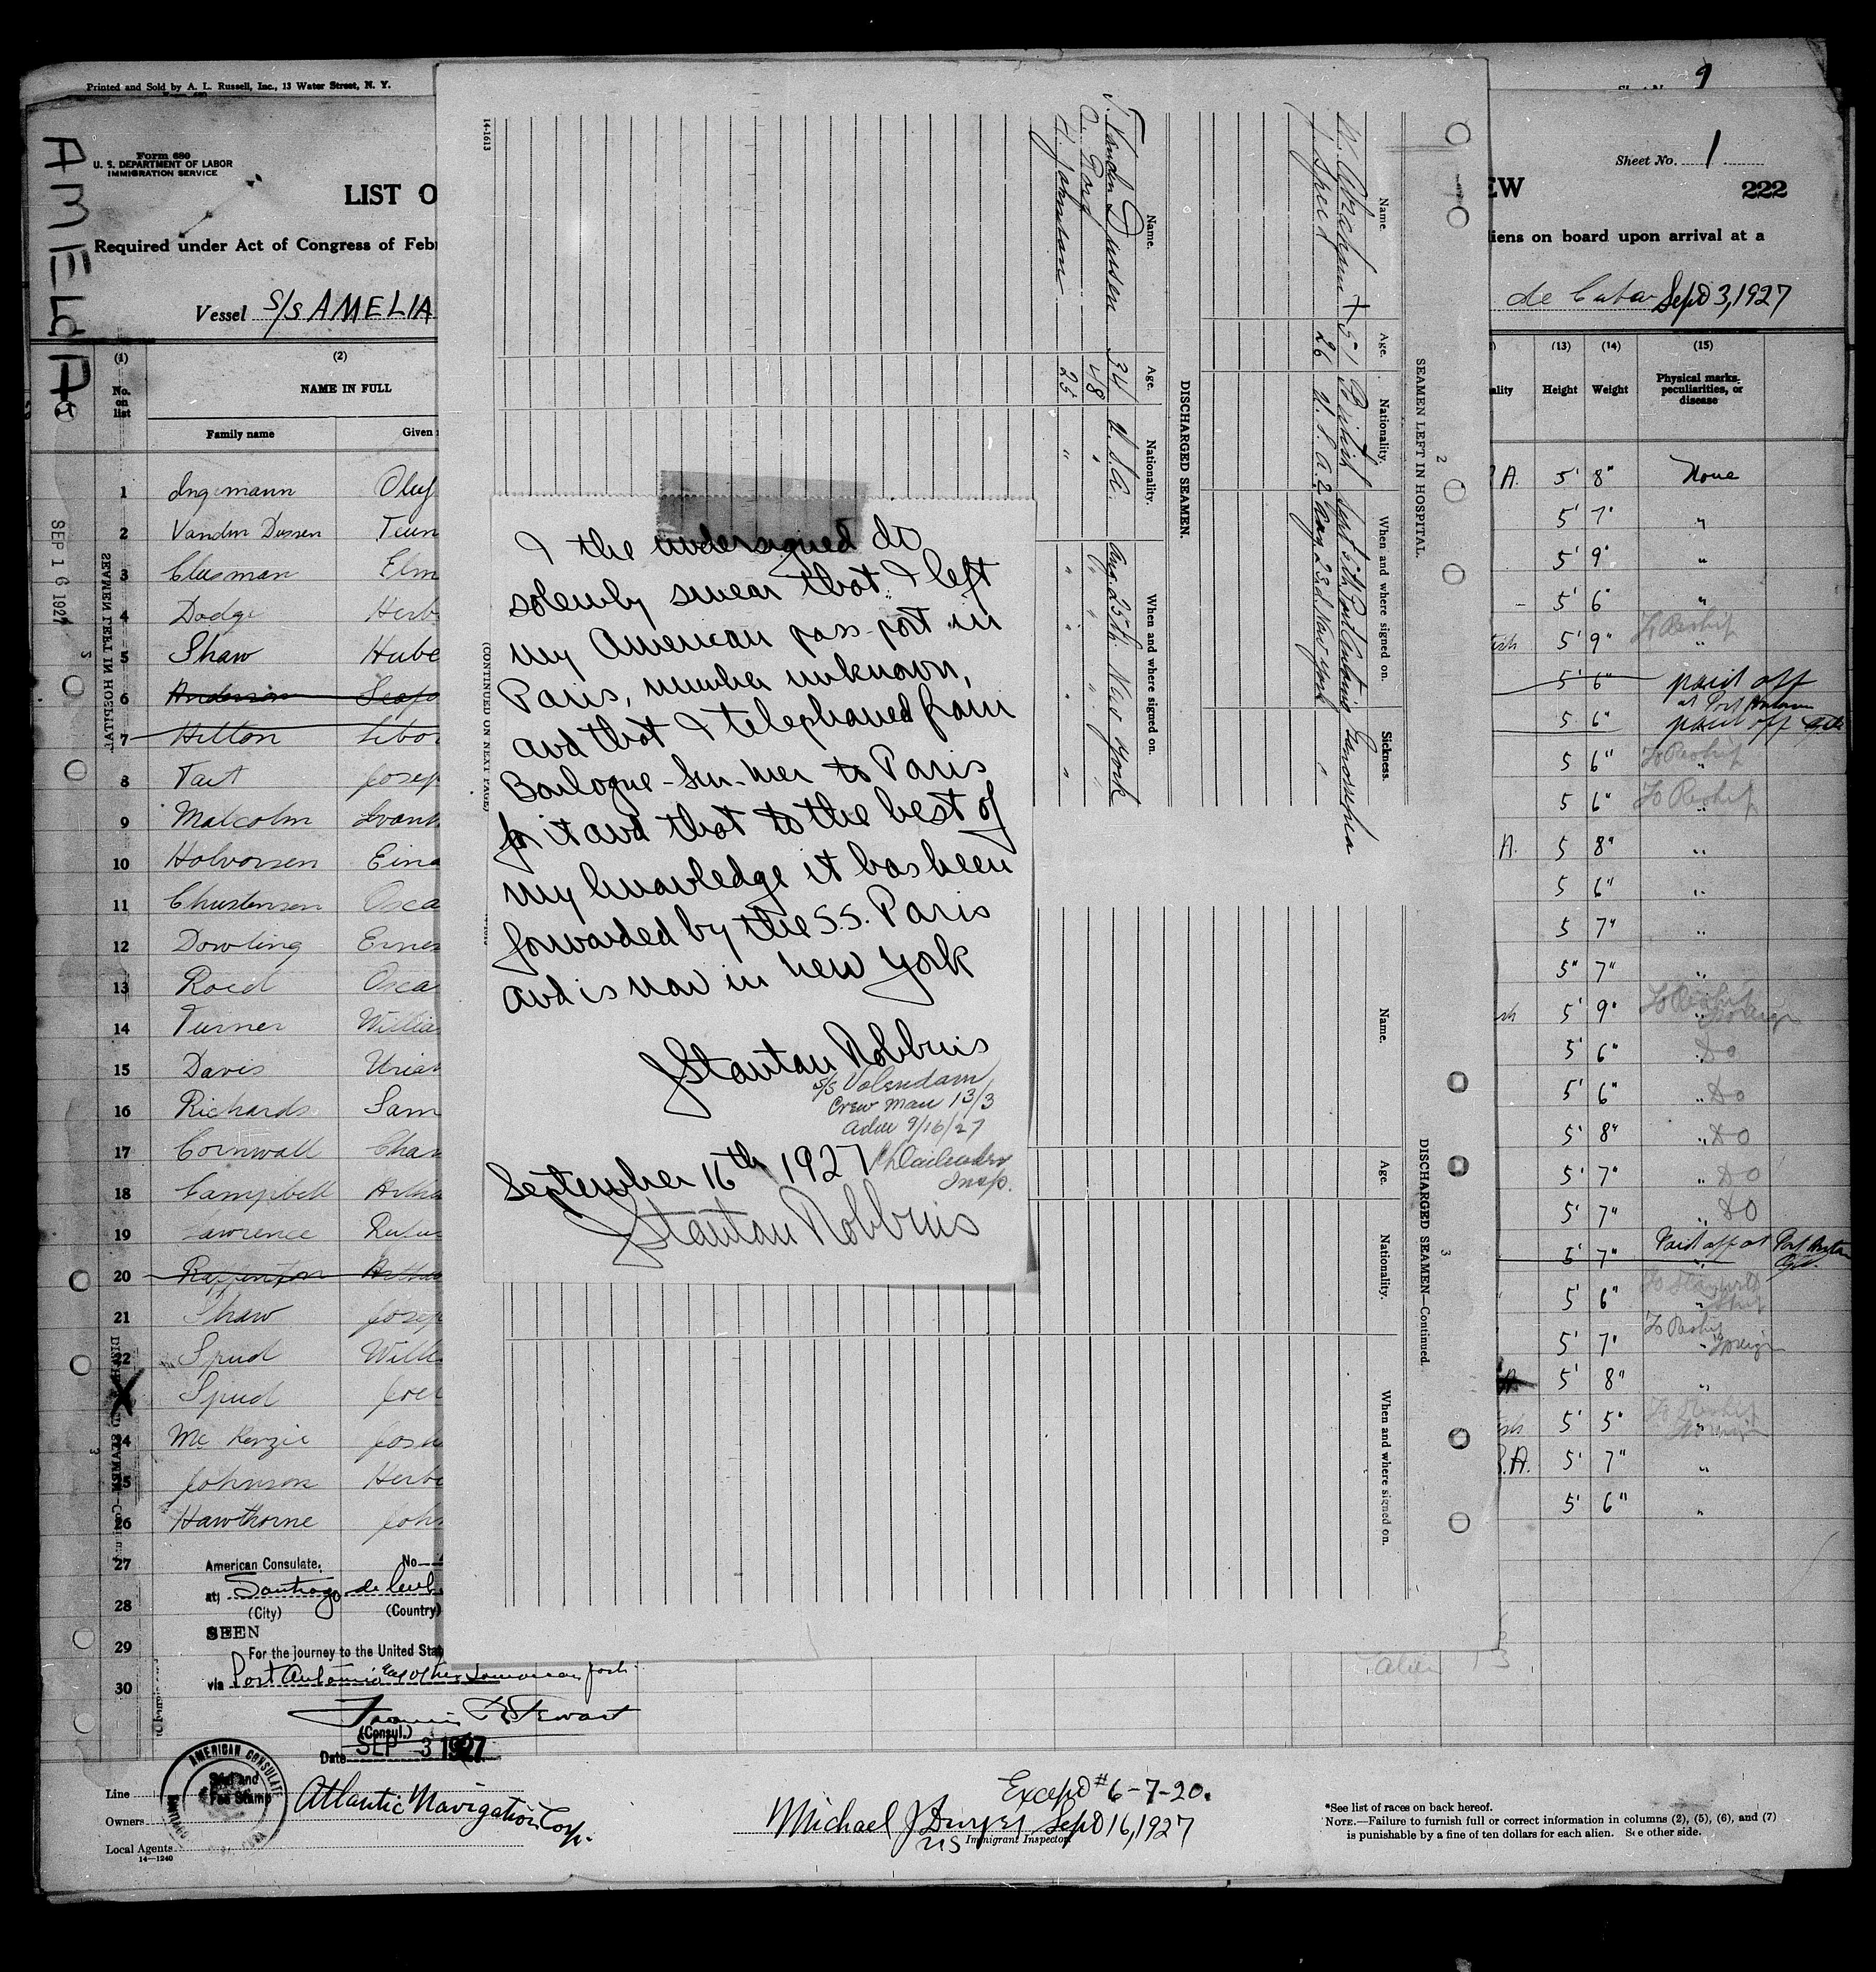 Printed and Sold by A. L. Russell, Inc., 13 Water Street, N. Y.
9
Form 680
U. S. DEPARTMENT OF LABOR
IMMIGRATION SERVICE
Sheet No. 1
LIST O
EW
222
Required under Act of Congress of Feb
liens on board upon arrival at a
Vessel S/S AMELIA
de Cuba Sept 3, 1927
AMELIA
SEP 16 1927
(1) (2) (13) (14) (15)
No. on list
NAME IN FULL
Family name Given
ality Height Weight Physical marks, peculiarities, or disease
1 Ingemann Oluf A. 5' 8" None
2 Vanden Dussen Teun 5' 7" "
3 Clusman Elm 5' 9" "
4 Dodge Herb 5' 6" "
5 Shaw Hube 5' 9" To Reship "
6 Anderson 5' 6" paid off at Port Antonio
7 Hilton 5 6" paid off
8 Tait Josep 5 6" To Reship
9 Malcolm 5 6" To Reship
10 Halvorsen Eina A. 5 8" "
11 Christensen Osca 5 6" "
12 Dowling Ernes 5 7" "
13 Roed Osca 5" 7" "
14 Turner Willia 5' 9" To Reship Foreign
15 Davis Uriah 5' 6" Do
16 Richards Sam 5' 6" " Do
17 Cornwall Char 5' 8" " Do
18 Campbell Arthu 5' 7" " Do
19 Lawrence Rufus 5' 7" " Do
20 Arthu 5' 7" Paid off at Port Antonio
21 Shaw Josep 5' 6"
22 Speed Willi 5' 7" To Reship Foreign
X Speed Joel 5' 8" "
24 Mc Kenzie Josh 5' 5" To Reship Foreign
25 Johnson Herbe S.A. 5' 7" "
26 Hawthorne John 5' 6" "
27
28
29
30
SEAMEN LEFT IN HOSPITAL
American Consulate, No
at Santiago de Cub
(City) (Country)
SEEN
For the journey to the United Stat
via Port Antonio
Francis R Stewart
(Consul.)
Date SEP 3 1927
AMERICAN CONSULATE
Seal and Fee Stamp
Line
Owners
Atlantic Navigation Corp.
Local Agents
14—1240
Except # 6-7-20.
Michael J Dwyer Sept 16, 1927
US Immigrant Inspector
*See list of races on back hereof.
NOTE.—Failure to furnish full or correct information in columns (2), (5), (6), and (7)
is punishable by a fine of ten dollars for each alien. See other side.
alien 13
2
SEAMEN LEFT IN HOSPITAL.
Name. Age. Nationality. When and where signed on. Sickness.
W. Abraham X 51 British Sept 5th Port Antonio
J. Speed 26 U. S. A. Aug 23d New York "
DISCHARGED SEAMEN.
Name. Age. Nationality. When and where signed on.
T. Vanden Dussen 34 U.S.A. Aug. 25th. New York
48 " " "
H. Johnson 25 " " "
14-1613
(CONTINUED ON NEXT PAGE)
3
DISCHARGED SEAMEN—Continued.
Name. Age. Nationality. When and where signed on.
I the undersigned do
solemly swear that I left
my American pass-port in
Paris, number unknown,
and that I telephoned from
Boulogne-Sur-Mer to Paris
for it and that to the best of
my knowledge it has been
forwarded by the S.S. Paris
and is now in New York
J Stanton Robbins
S/S Volendam
Crew man 13/3
Adm 9/16/27
Insp.
September 16th 1927
J Stanton Robbins